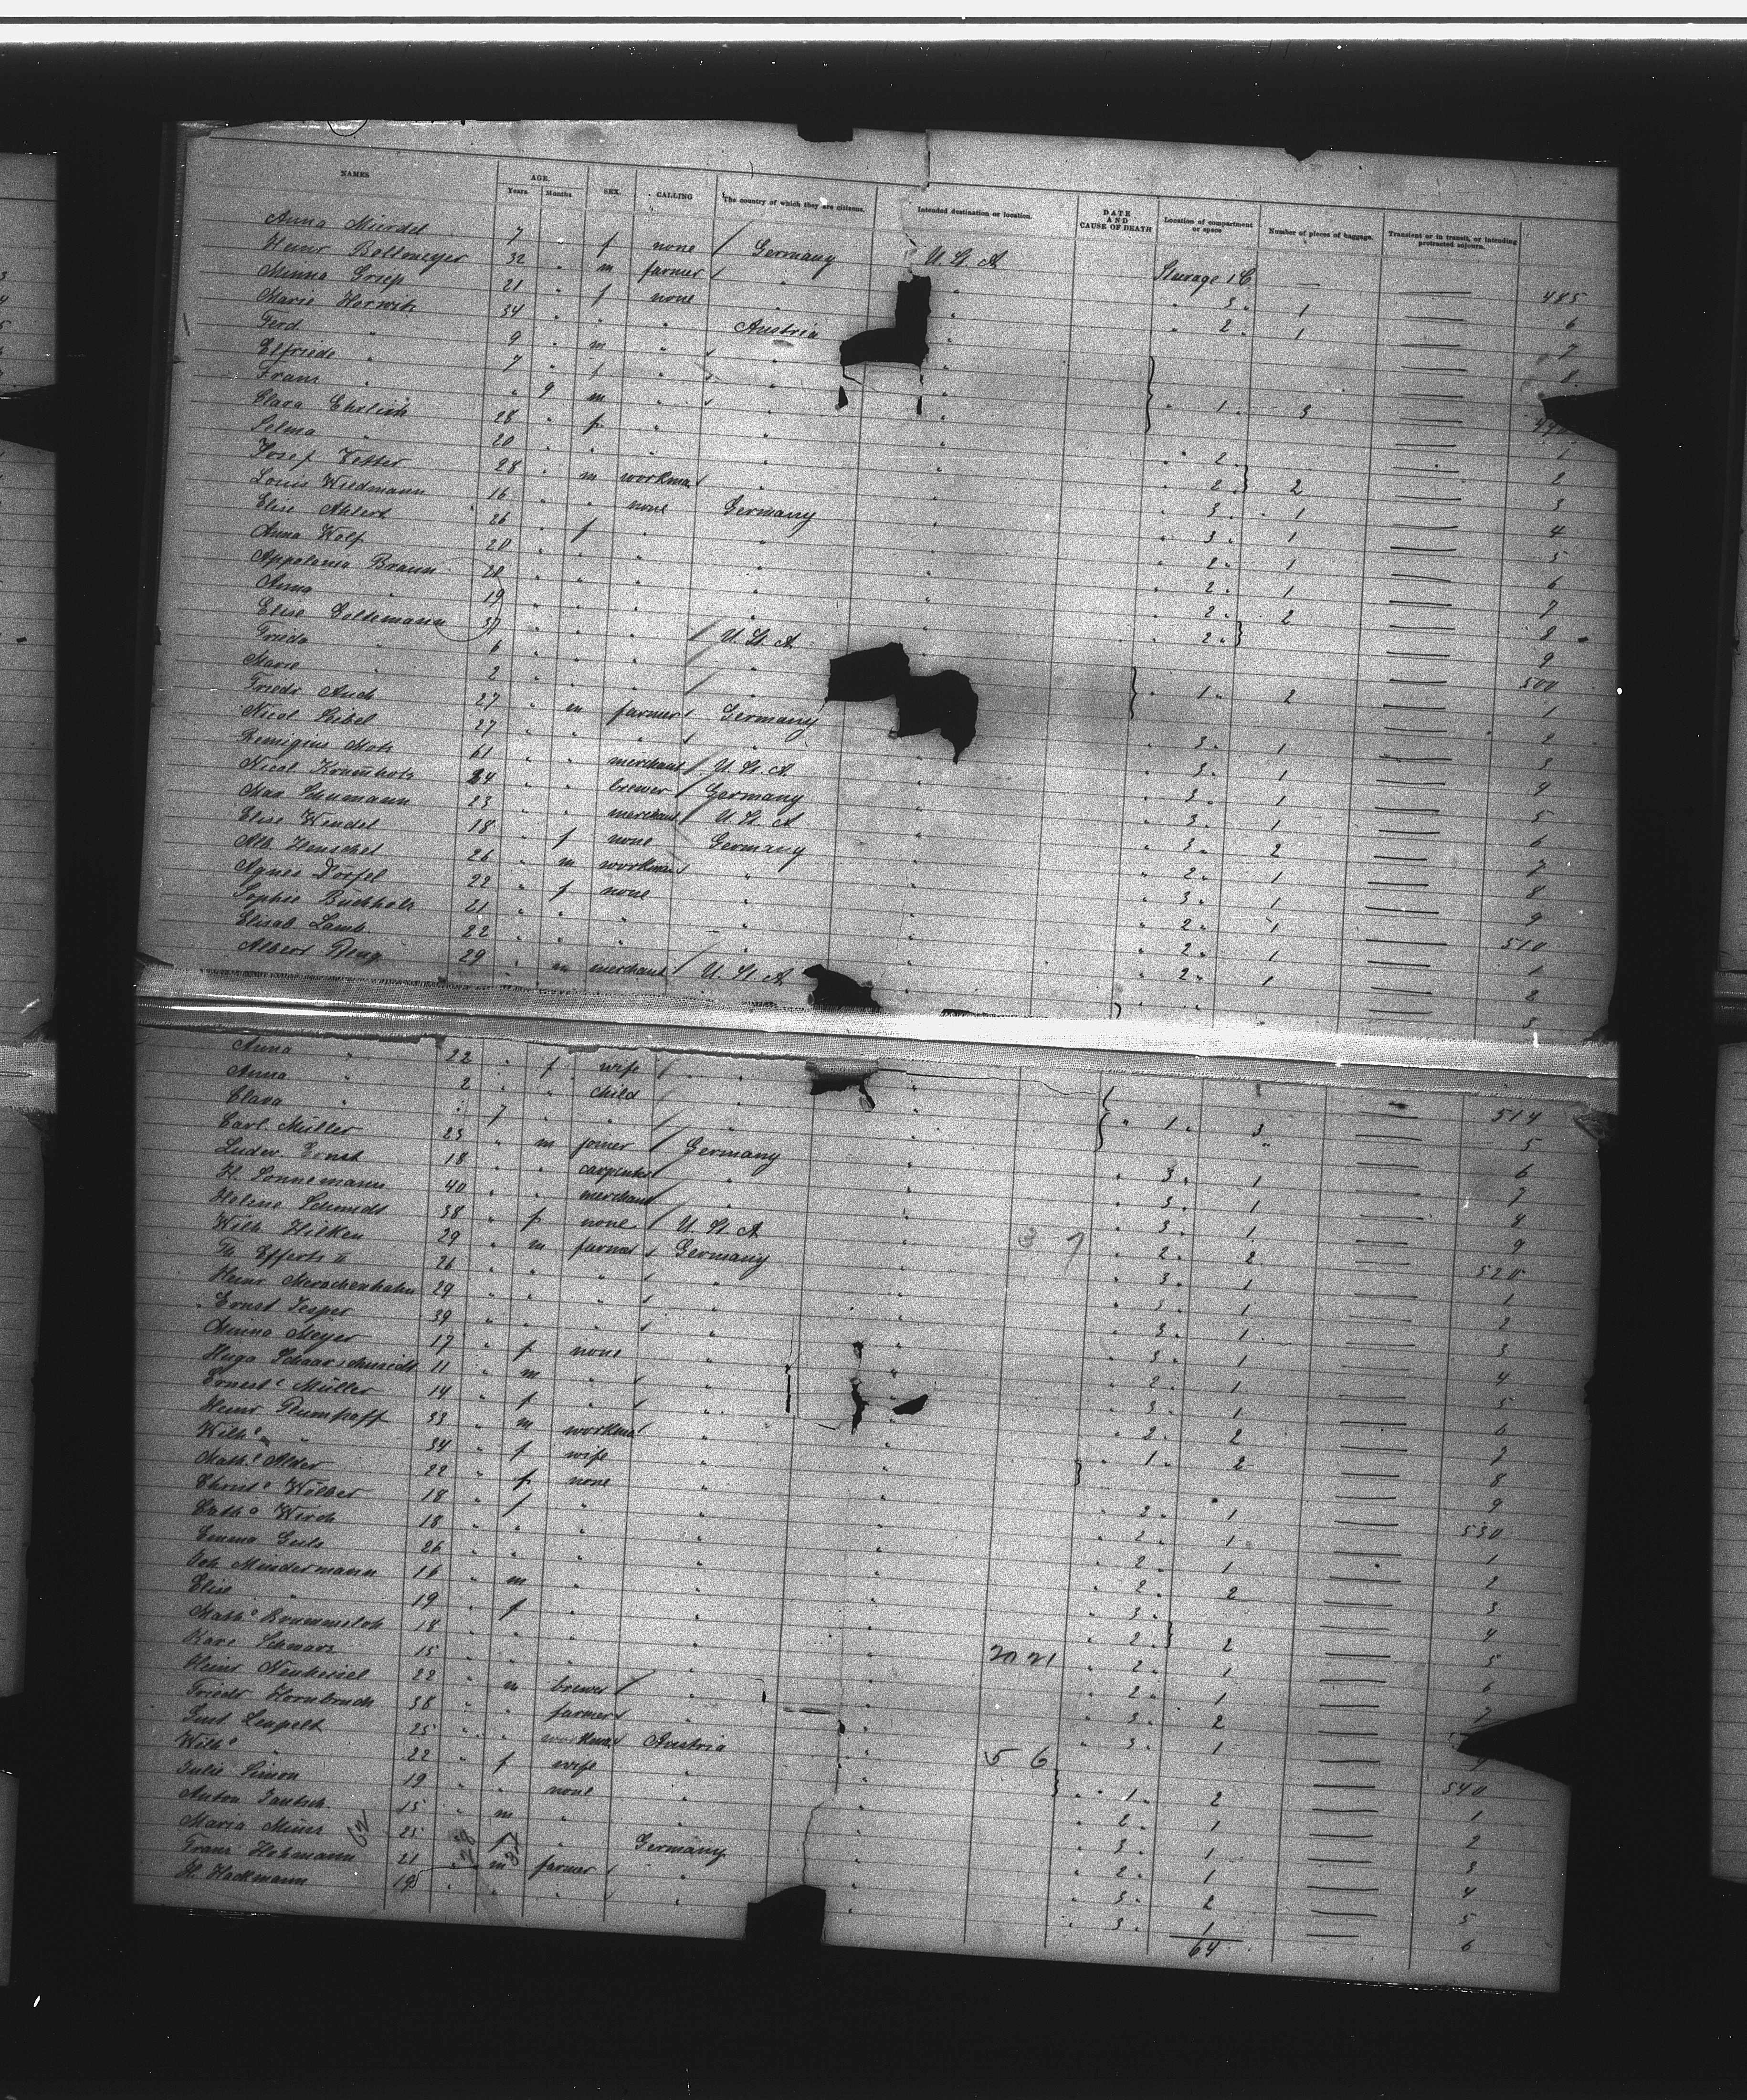 NAMES AGE. Years. Months. SEX. CALLING The country of which they are citizens. Intended destination or location. DATE AND CAUSE OF DEATH Location of compartment or space Number of pieces of baggage. Transient or in transit, or intending protracted sojourn.
Anna Mierdel 7 " f none / Germany U. St. A. Steerage 1 C — — 485
Heinr Bollmeyer 32 " m farmer / " " " 3 " 1 — 6
Minna Griep 21 " f none " " " 2 " 1 — 7
Marie Horwitz 34 " " " Austria " — 8
Ferd " 9 " m " " "
Elfriede " 7 " f " " " } " 1 " 3 —
Franz " " 9 m " " " — 1
Clara Ehrlich 28 " f " " " " 2 — 2
Selma " 20 " " " " " " 2 } 2 — 3
Josef Vetter 28 " m workman " " " 3 " 1 — 4
Louis Wiedmann 16 " " none Germany " " 3 " 1 — 5
Elise Ahlert 26 " f " " " " 2 " 1 — 6
Anna Wolf 20 " " " " " " 2 " 1 — 7
Appolonia Braun 28 " " " " " " 2 " 2 — 8
Anna " 19 " " " " " 2 " } — 9
Elise Goltemann 37 " " " / U. St. A. — 500
Frieda " 6 " " " / " } " 1 " 2 — 1
Marie " 2 " " " / " — 2
Friedr Auch 27 " m farmer Germany " 3 " 1 — 3
Nicol Leibel 27 " " " " " 3 " 1 — 4
Remigius Motz 61 " " merchant / U. St. A. " " 3 " 1 — 5
Nicol Krumholz 24 " " brewer / Germany " " 3 " 1 — 6
Max Schumann 23 " " merchant / U. St. A " " 3 " 2 — 7
Elise Wendel 18 " f none Germany " " 2 " 1 — 8
Alb. Henschel 26 " m workman " " " 3 " 1 — 9
Agnes Dörfel 22 " f none " " " 2 " 1 — 510
Sophie Buchholz 21 " " " " " " 2 " 1 — 1
Elisab Lamb 22 " " " " " " 2 " 1 — 2
Albert 29 " m merchant / U. St. A. " 3
Anna " 22 " f wife / " " — 514
Anna " 2 " " child / " " } " 1 " 3 — 5
Clara " " 7 " " / " — 6
Carl Müller 23 " m joiner / Germany " " 3 " 1 — 7
Ludw. Ernst 18 " " carpenter / " " " 3 " 1 — 8
H. Sonnemann 40 " " merchant / " " " 3 " 1 — 9
Helene Schmidt 38 " f none / U. St. A " 3 7 " 2 " 2 — 520
Wilh Hilken 29 " m farmer Germany " " 3 " 1 — 1
Th. Efferts II 26 " " " " " " 3 " 1 — 2
Heinr 29 " " " " " " 3 " 1 — 3
Ernst Jesper 39 " " " " " " 3 " 1 — 4
Minna Meyer 17 " f none " " " 2 " 1 — 5
Hugo Schaarschmidt 11 " m " " " " 3 " 1 — 6
Ernest<sup>e</sup> Müller 14 " f " " " " 2 " 2 — 7
Heinr Plumhoff 33 " m workman " " " 1 " 2 — 8
Wilh<sup>e</sup> " 34 " f wife " " } — 9
Math<sup>e</sup> Alder 22 " f none " " " 2 " 1 — 530
Christ<sup>e</sup> Wölber 18 " f " " " " 2 " 1 — 1
Cath<sup>a</sup> Wirch 18 " " " " " " 2 " 1 — 2
Emma Geils 26 " " " " " " 2 " 2 — 3
Joh Mindermann 16 " m " " " " 3 " — 4
Elise " 19 " f " " " " 2 " } 2 — 5
Math<sup>e</sup> Brummeloh 18 " " " " " 20 21 " 2 " 1 — 6
Kare Schwarz 15 " " " " " " 2 " 1 — 7
Heinr Neukeisel 22 " m brewer / " " " 3 " 2 —
Friedr Hornbruch 38 " " farmer " " " 3 " 1 — 9
Gust Leupelt 25 " " workman Austria " 5 6 — 540
Wilh<sup>e</sup> " 22 " f wife " " } " 1 " 2 — 1
Julie Simon 19 " " none " " " 2 " 1 — 2
Anton Jantsch 15 " m " " " " 3 " 1 — 3
Maria 25 " f " Germany " " 2 " 1 — 4
Franz Hohmann 21 " m farmer " " " 3 " 2 — 5
H. Hackmann 19 " " " " " " 3 " 1 — 6
64